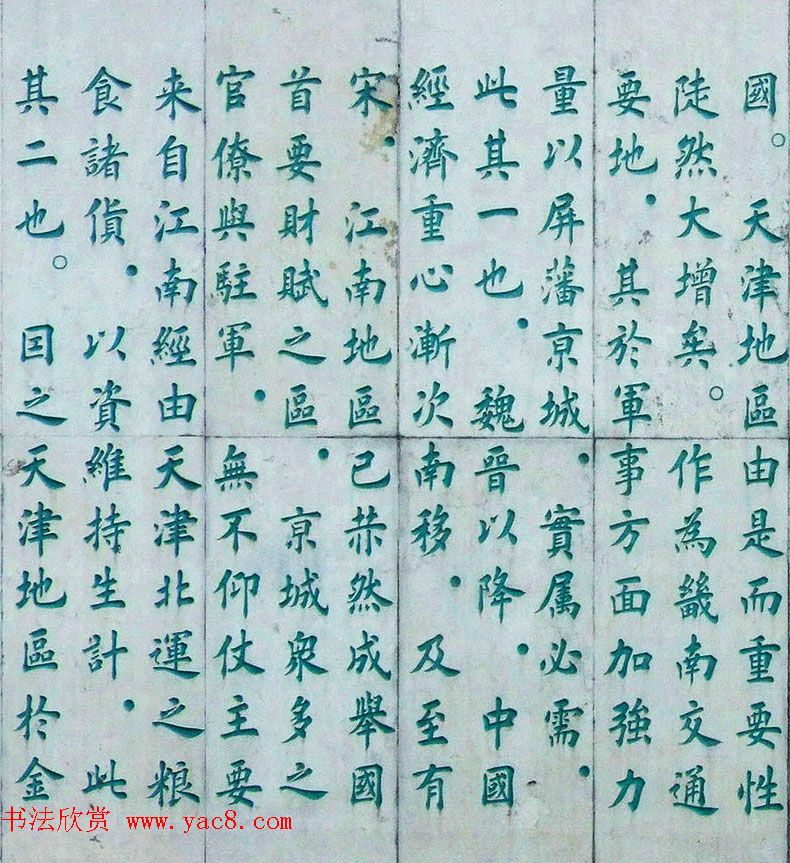 國。天津地區由是而重要性
陡然大增矣。作為畿南交通
要地·其於軍事方面加強力
量以屏藩京城·實属必需·
此其一也·魏晉以降·中國
經濟重心漸次南移·及至有
宋·江南地區已恭然成舉國
首要財賦之區·京城衆多之
官僚與駐軍·無不仰仗主要
来自江南經由天津北運之粮
食諸貨·以資維持生計·此
其二也。囙之天津地區於金
书法欣赏 www.yac8.com